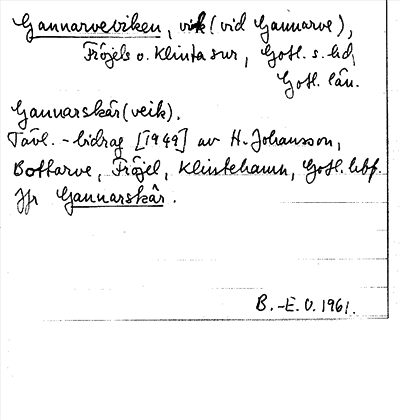 Gannarveviken, vik (vid Gannarve),
Fröjels o. Klinta snr, Gotl. s. hd,
Gotl. län.
Gannarskár (veik).
Tävl.-bidrag [1949] av H. Johansson,
Bottarve, Fröjel, Klintehamn, Gotl. hbf.
Jfr Gannarskär.
B.-E. O. 1961.